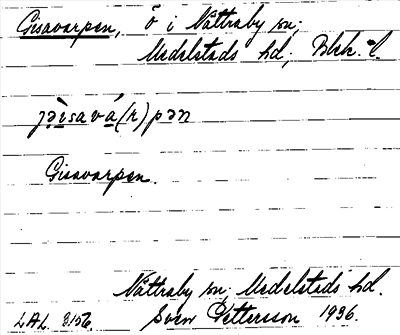 Gisavarpen, ö i Nättraby sn;
Medelstads hd; Blek. l.
jə̀isavá(r)pən
Gisavarpen.
Nättraby sn; Medelstads hd.
LAL. 3156. Sven Pettersson 1936.